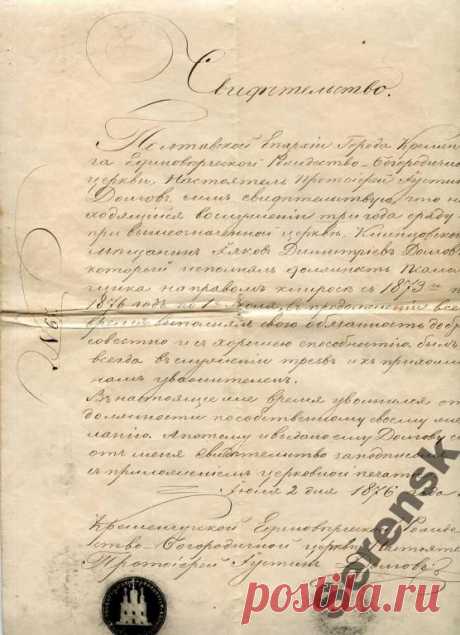 Свидѣтельство.
Полтавской Епархіи Города Кремен
га Единоверческой Рождество-Богородичн
церкви, Настоятель Протоіерей Іустин
Долгов, симъ свидѣтельствую, что на
ходящийся в служении три года сряду
при вышеозначенной церквѣ,
мѣщанинъ Яковъ Димитріевъ Долговъ
который исполнялъ должность Псалом
щика на правомъ клиросѣ съ 1873 го п
1876 годъ по 1е Іюля, въ продолженіи все
время исполнялъ свою обязанность добро
совестно и съ хорошею способностію, былъ
всегда въ служении требъ и къ прихожа
намъ уважителен.
Въ настоящее же время уволился отъ
должности по собственному своему же
ланію. А потому и выдано ему Долгову с
отъ меня свидѣтельство за подписом
съ приложеніемъ церковной печати
Іюля 2 дня 1876 года
№ 6
Кременчугской Единоверческой Рожде
ство-Богородичной церкви Настояте
Протоіерей Іустинъ Долговъ
Gerensk
postila.ru